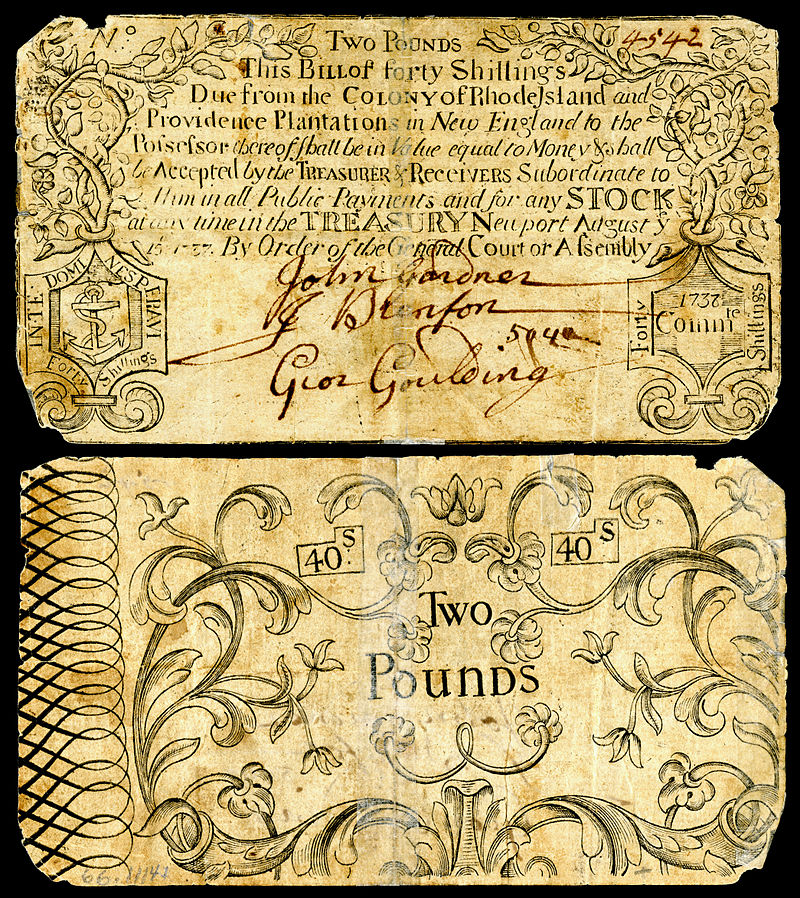 No 4542
Two Pounds
This Bill of forty Shillings
Due from the Colony of Rhode Island and
Providence Plantations in New England to the
Possessor thereof shall be in Value equal to Money & shall
be Accepted by the Treasurer & Receivers Subordinate to
Him in all Public Payments and for any STOCK
at any time in the TREASURY Newport August ye
By Order of the General Court or Assembly
IN TE DOMINE SPERAVI
Forty Shillings
John Gardner
Geor Goulding
Forty Shillings
1737
Commte
40s
40s
Two
Pounds